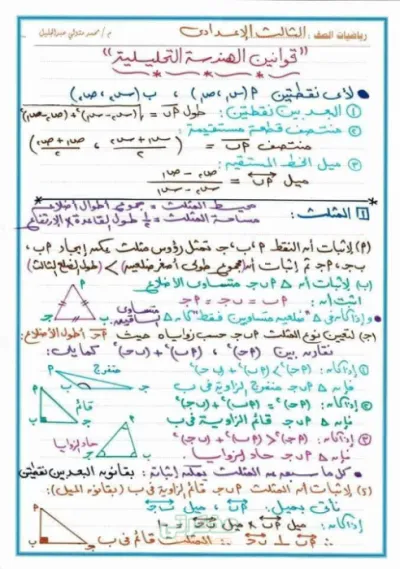 رياضيات الصف : الثالث الإعدادى م / محمد متولى عبدالجليل
" قوانين الهندسة التحليلية "
لأى نقطتين م (س١ , ص١) , ب (س٢ , ص٢)
① البعد بين نقطتين : طول م ب = √(س٢ - س١)² + (ص٢ - ص١)²
② منتصف قطعة مستقيمة :
منتصف م ب = ( س١ + س٢ / ٢ , ص١ + ص٢ / ٢ )
③ ميل الخط المستقيم :
ميل م ب = ص٢ - ص١ / س٢ - س١
محيط المثلث = مجموع أطوال أضلاعه
١ المثلث : مساحة المثلث = ½ طول القاعدة × الارتفاع
(م) لإثبات أن النقط م ، ب ، ج تمثل رؤوس مثلث يمكن إيجاد م ب ,
ب ج , م ج ثم إثبات أن (مجموع طولى أصغر ضلعين) > (طول الضلع الثالث)
(ب) لإثبات أن △ م ب ج متساوى الأضلاع
أثبت أن : م ب = ب ج = م ج
وإذا كان فى △ ضلعين متساويين فقط كان △ متساوى الساقين
(ج) لتعيين نوع المثلث م ب ج حسب زواياه حيث م ج أطول الأضلاع :
نقارن بين (م ج)² , (م ب)² + (ب ج)² كما يلى :
① إذا كان : (م ج)² > (م ب)² + (ب ج)² منفرج
فإن △ م ب ج منفرج الزاوية فى ب
② إذا كان : (م ج)² = (م ب)² + (ب ج)² قائم
فإن △ م ب ج قائم الزاوية فى ب
③ إذا كان : (م ج)² < (م ب)² + (ب ج)² حاد الزوايا
فإن △ م ب ج حاد الزوايا .
كل ما سبق عن المثلث يمكن إثباته : بقانون البعد بين نقطتين
(د) لإثبات أن المثلث م ب ج قائم الزاوية فى ب (بقانون الميل) :
نأتى بميل : م ب , ميل ب ج
إذا كان : ميل م ب × ميل ب ج = -١
∴ م ب ⊥ ب ج ∴ المثلث قائم فى ب